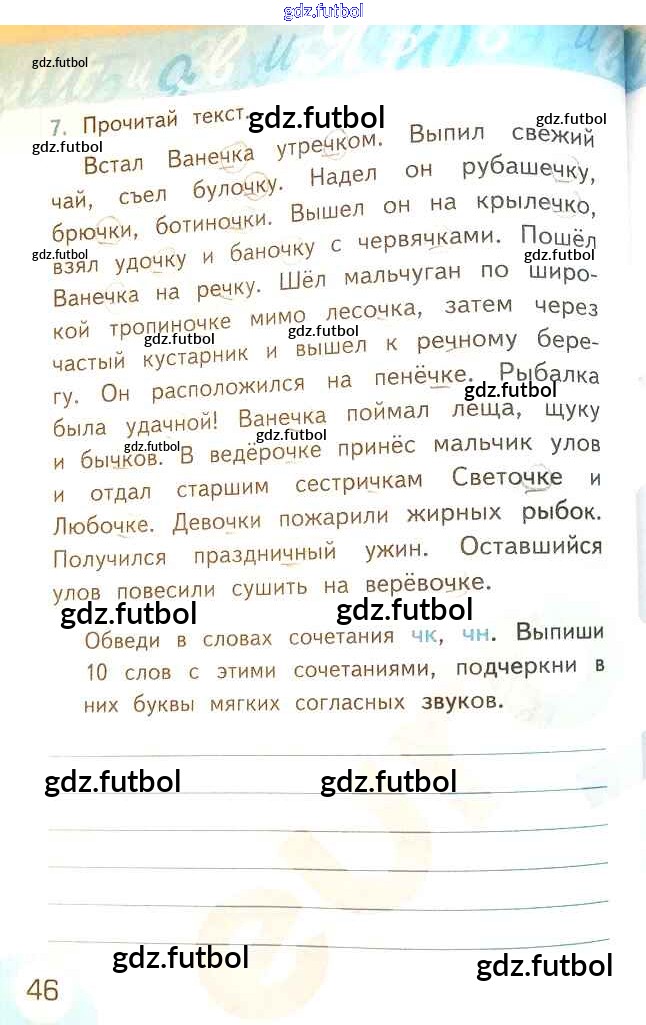 gdz.futbol
gdz.futbol
7. Прочитай текст.
gdz.futbol
gdz.futbol
gdz.futbol
Встал Ванечка утречком. Выпил свежий
чай, съел булочку. Надел он рубашечку,
брючки, ботиночки. Вышел он на крылечко,
gdz.futbol
gdz.futbol
взял удочку и баночку с червячками. Пошёл
Ванечка на речку. Шёл мальчуган по широ-
кой тропиночке мимо лесочка, затем через
gdz.futbol
gdz.futbol
частый кустарник и вышел к речному бере-
гу. Он расположился на пенёчке. Рыбалка
gdz.futbol
была удачной! Ванечка поймал леща, щуку
gdz.futbol
gdz.futbol
и бычков. В ведёрочке принёс мальчик улов
и отдал старшим сестричкам Светочке и
Любочке. Девочки пожарили жирных рыбок.
Получился праздничный ужин. Оставшийся
улов повесили сушить на верёвочке.
gdz.futbol
gdz.futbol
Обведи в словах сочетания чк, чн. Выпиши
10 слов с этими сочетаниями, подчеркни в
них буквы мягких согласных звуков.
gdz.futbol
gdz.futbol
gdz.futbol
gdz.futbol
46